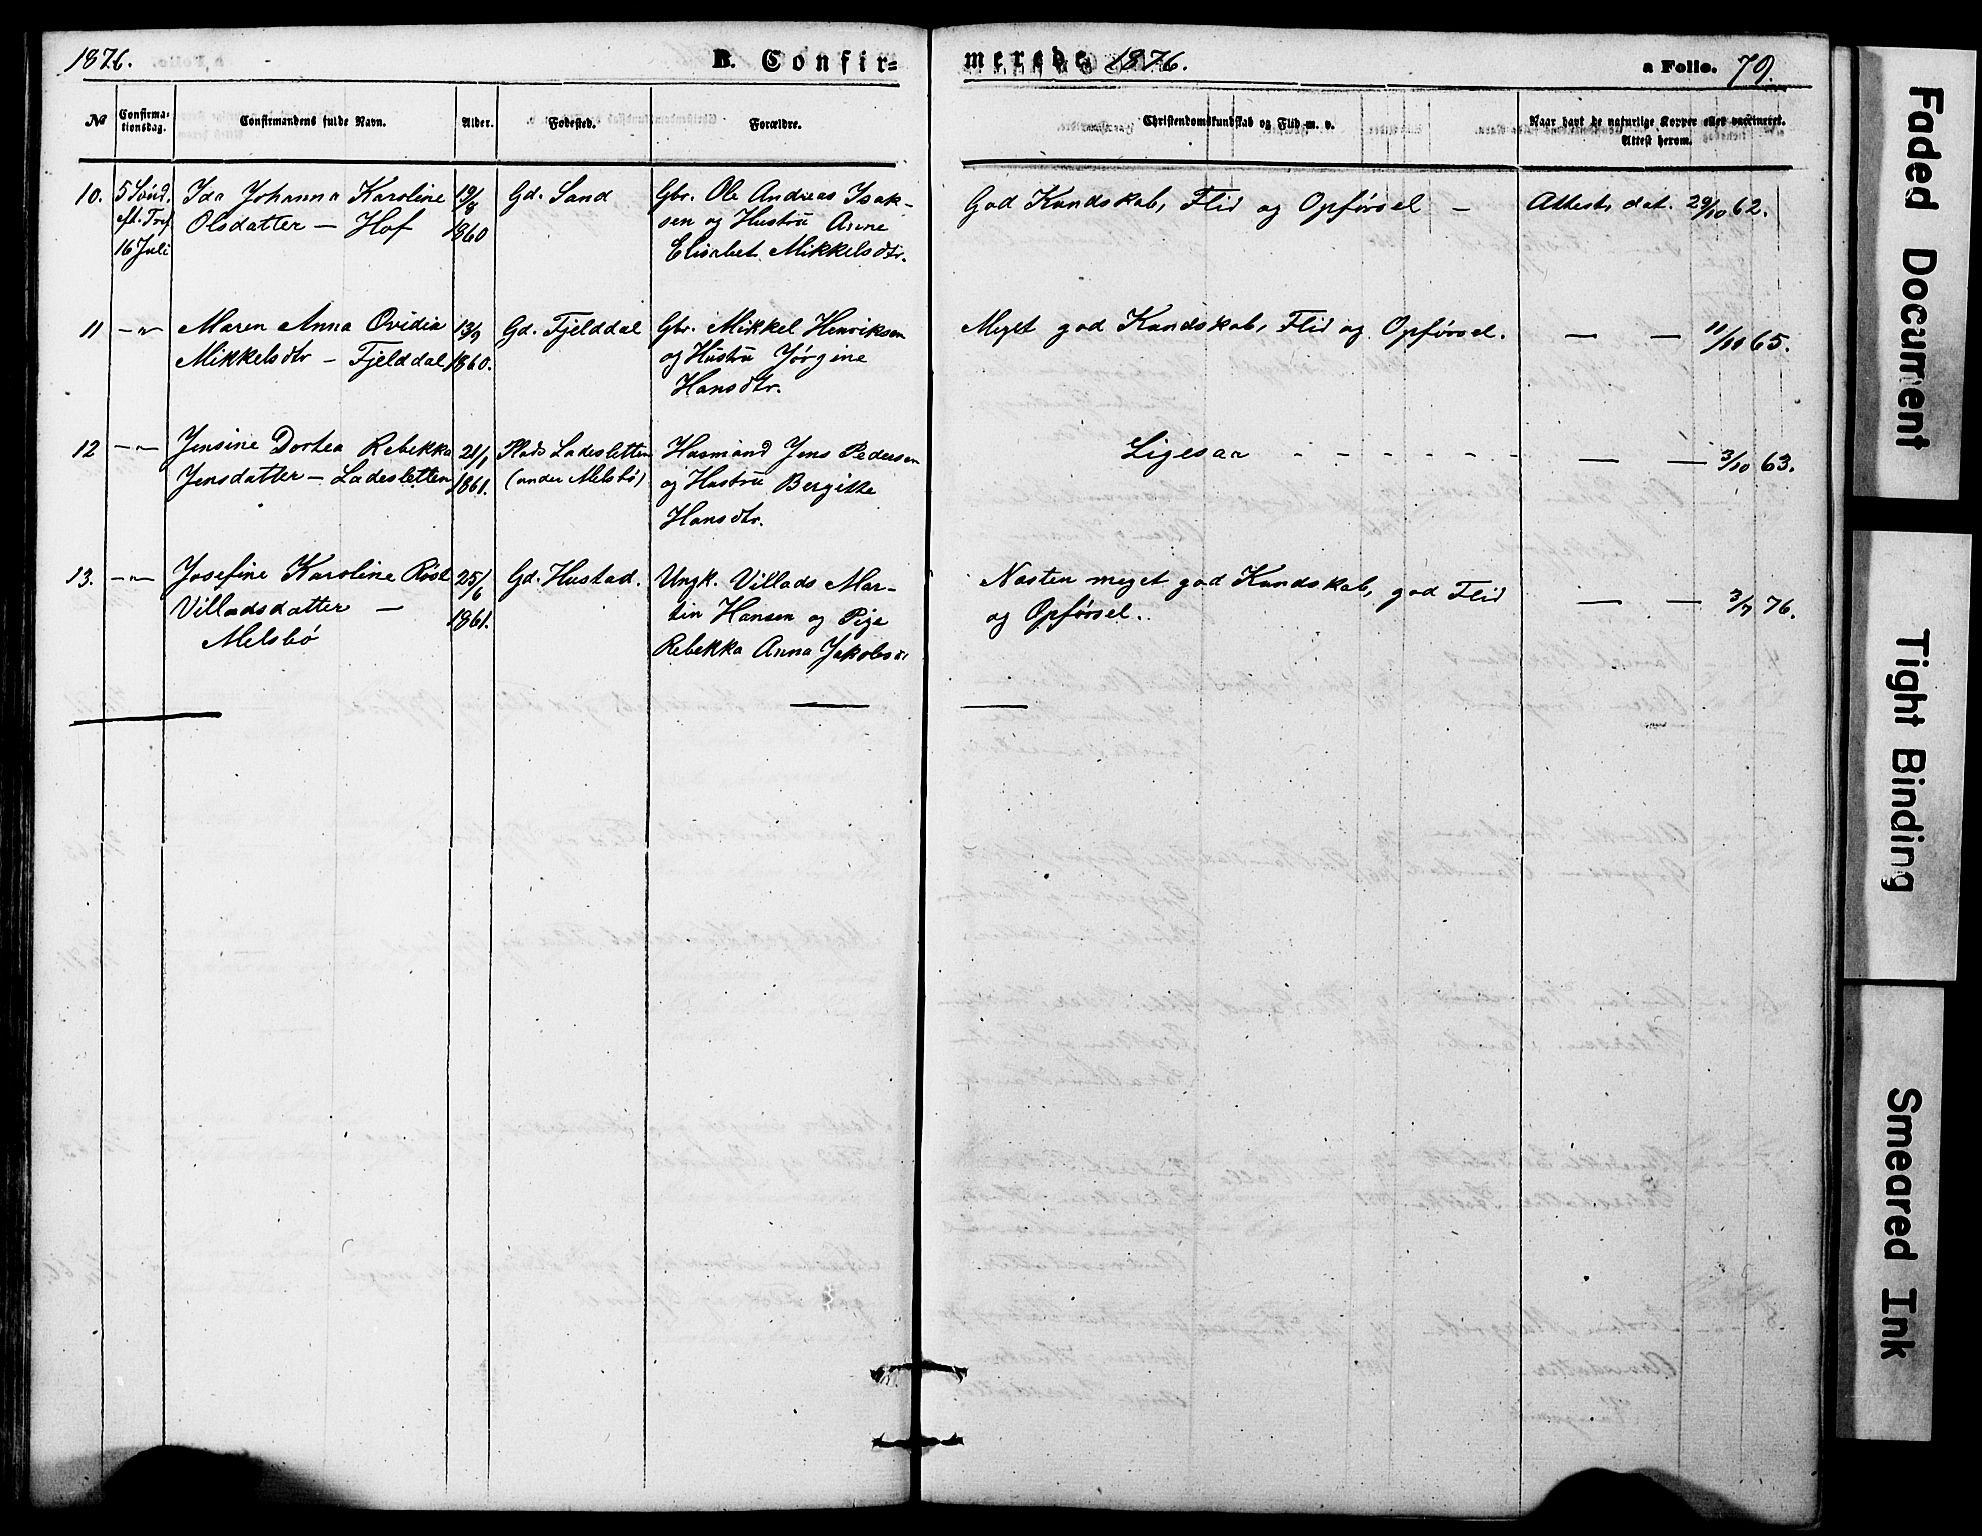 1876.
B. Confir=
merede 1876.
a Folio. 79.
№
Confirma-
tionsdag.
Confirmandens fulde Navn.
Alder.
Fødested.
Forældre.
Christendomskundskab og Flid m. v.
Naar havt de naturlige Kopper eller vaccineret.
Attest herom.
10. 5 Sønd. Ida Johanna Karoline 19/8 Gd. Sand Gbr. Ole Andreas Isak- God Kundskab, Flid og Opførsel — Attest, dat. 29/10 62.
eft. Tref. Olsdatter — Hof 1860 sen og Hustru Anne
16 Juli Elisabet Mikkelsdtr.
11 —"— Maren Anna Ovidia 13/9 Gd. Fjelddal Gbr. Mikkel Henriksen Meget god Kundskab, Flid og Opførsel. — — 11/10 65.
Mikkelsdtr — Fjelddal 1860. og Hustru Jørgine
Hansdtr.
12 —"— Jensine Dortea Rebekka 21/1 Plads Ladesletten Husmand Jens Pedersen Ligesaa - - - - - - — — 3/10 63.
Jensdatter — Ladesletten 1861. (under Melsbø) og Hustru Bergitte
Hansdtr.
13. —"— Josefine Karoline 25/6 Gd. Hustad. Ungk. Villads Mar- Næsten meget god Kundskab, god Flid — — 3/7 76.
Villadsdatter — 1861. tin Hansen og Pige og Opførsel.
Melsbø Rebekka Anna Jakobsdr
Faded Document
Tight Binding
Smeared Ink